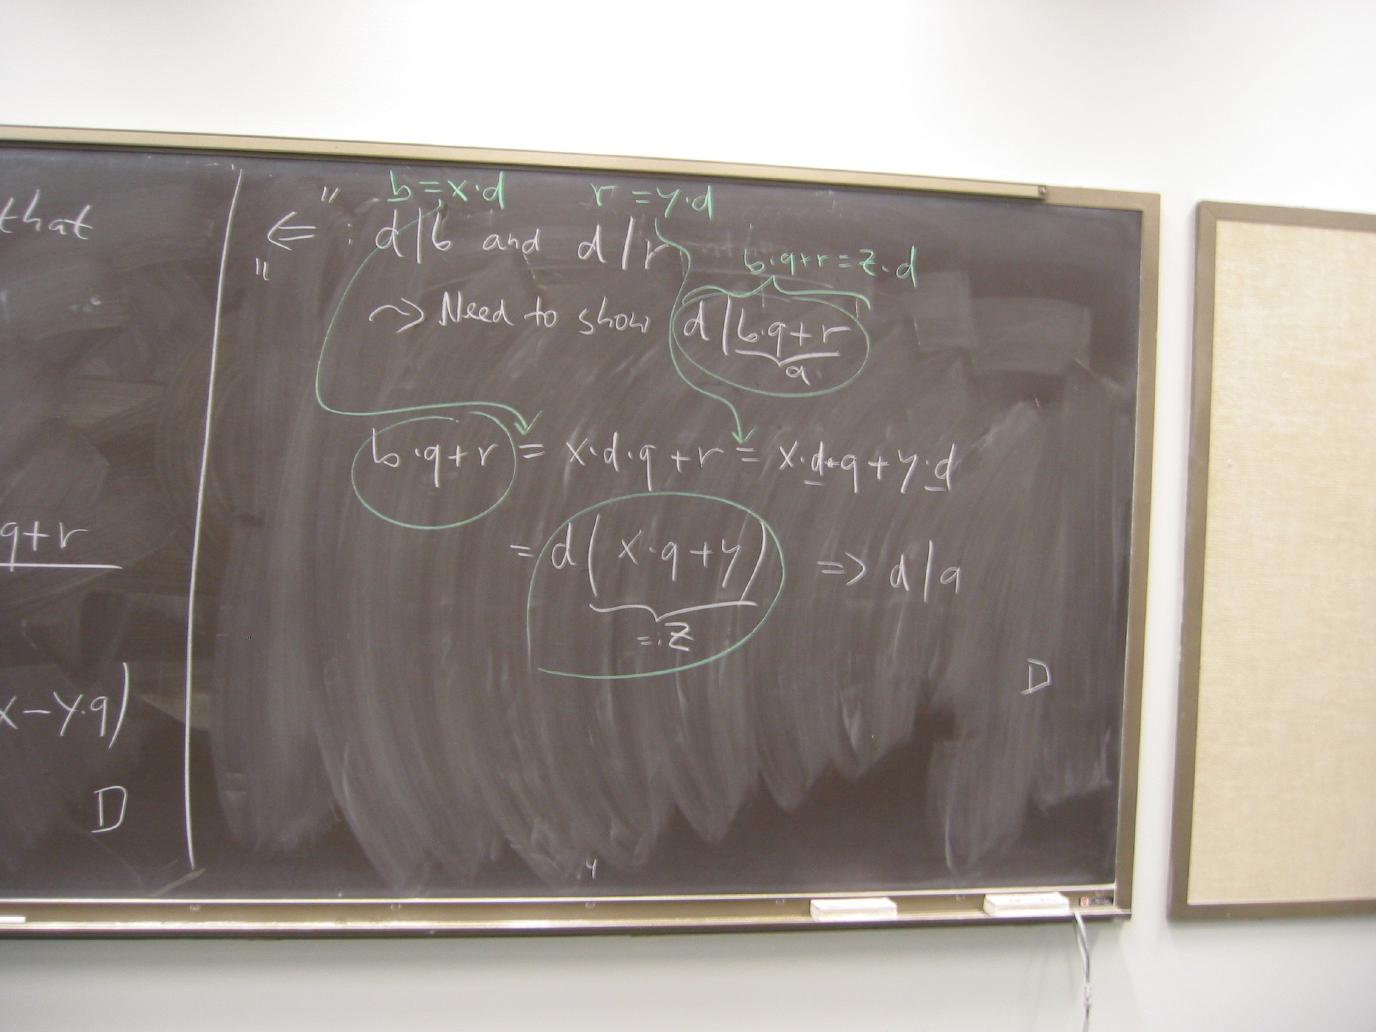 that
q+r
x-y·q)
D
b=x·d r=y·d
"⇐": d|b and d|r
b·q+r=z·d
~> Need to show d|b·q+r
a
b·q+r = x·d·q+r = x·d·q+y·d
= d(x·q+y) => d|a
=:z
D
4